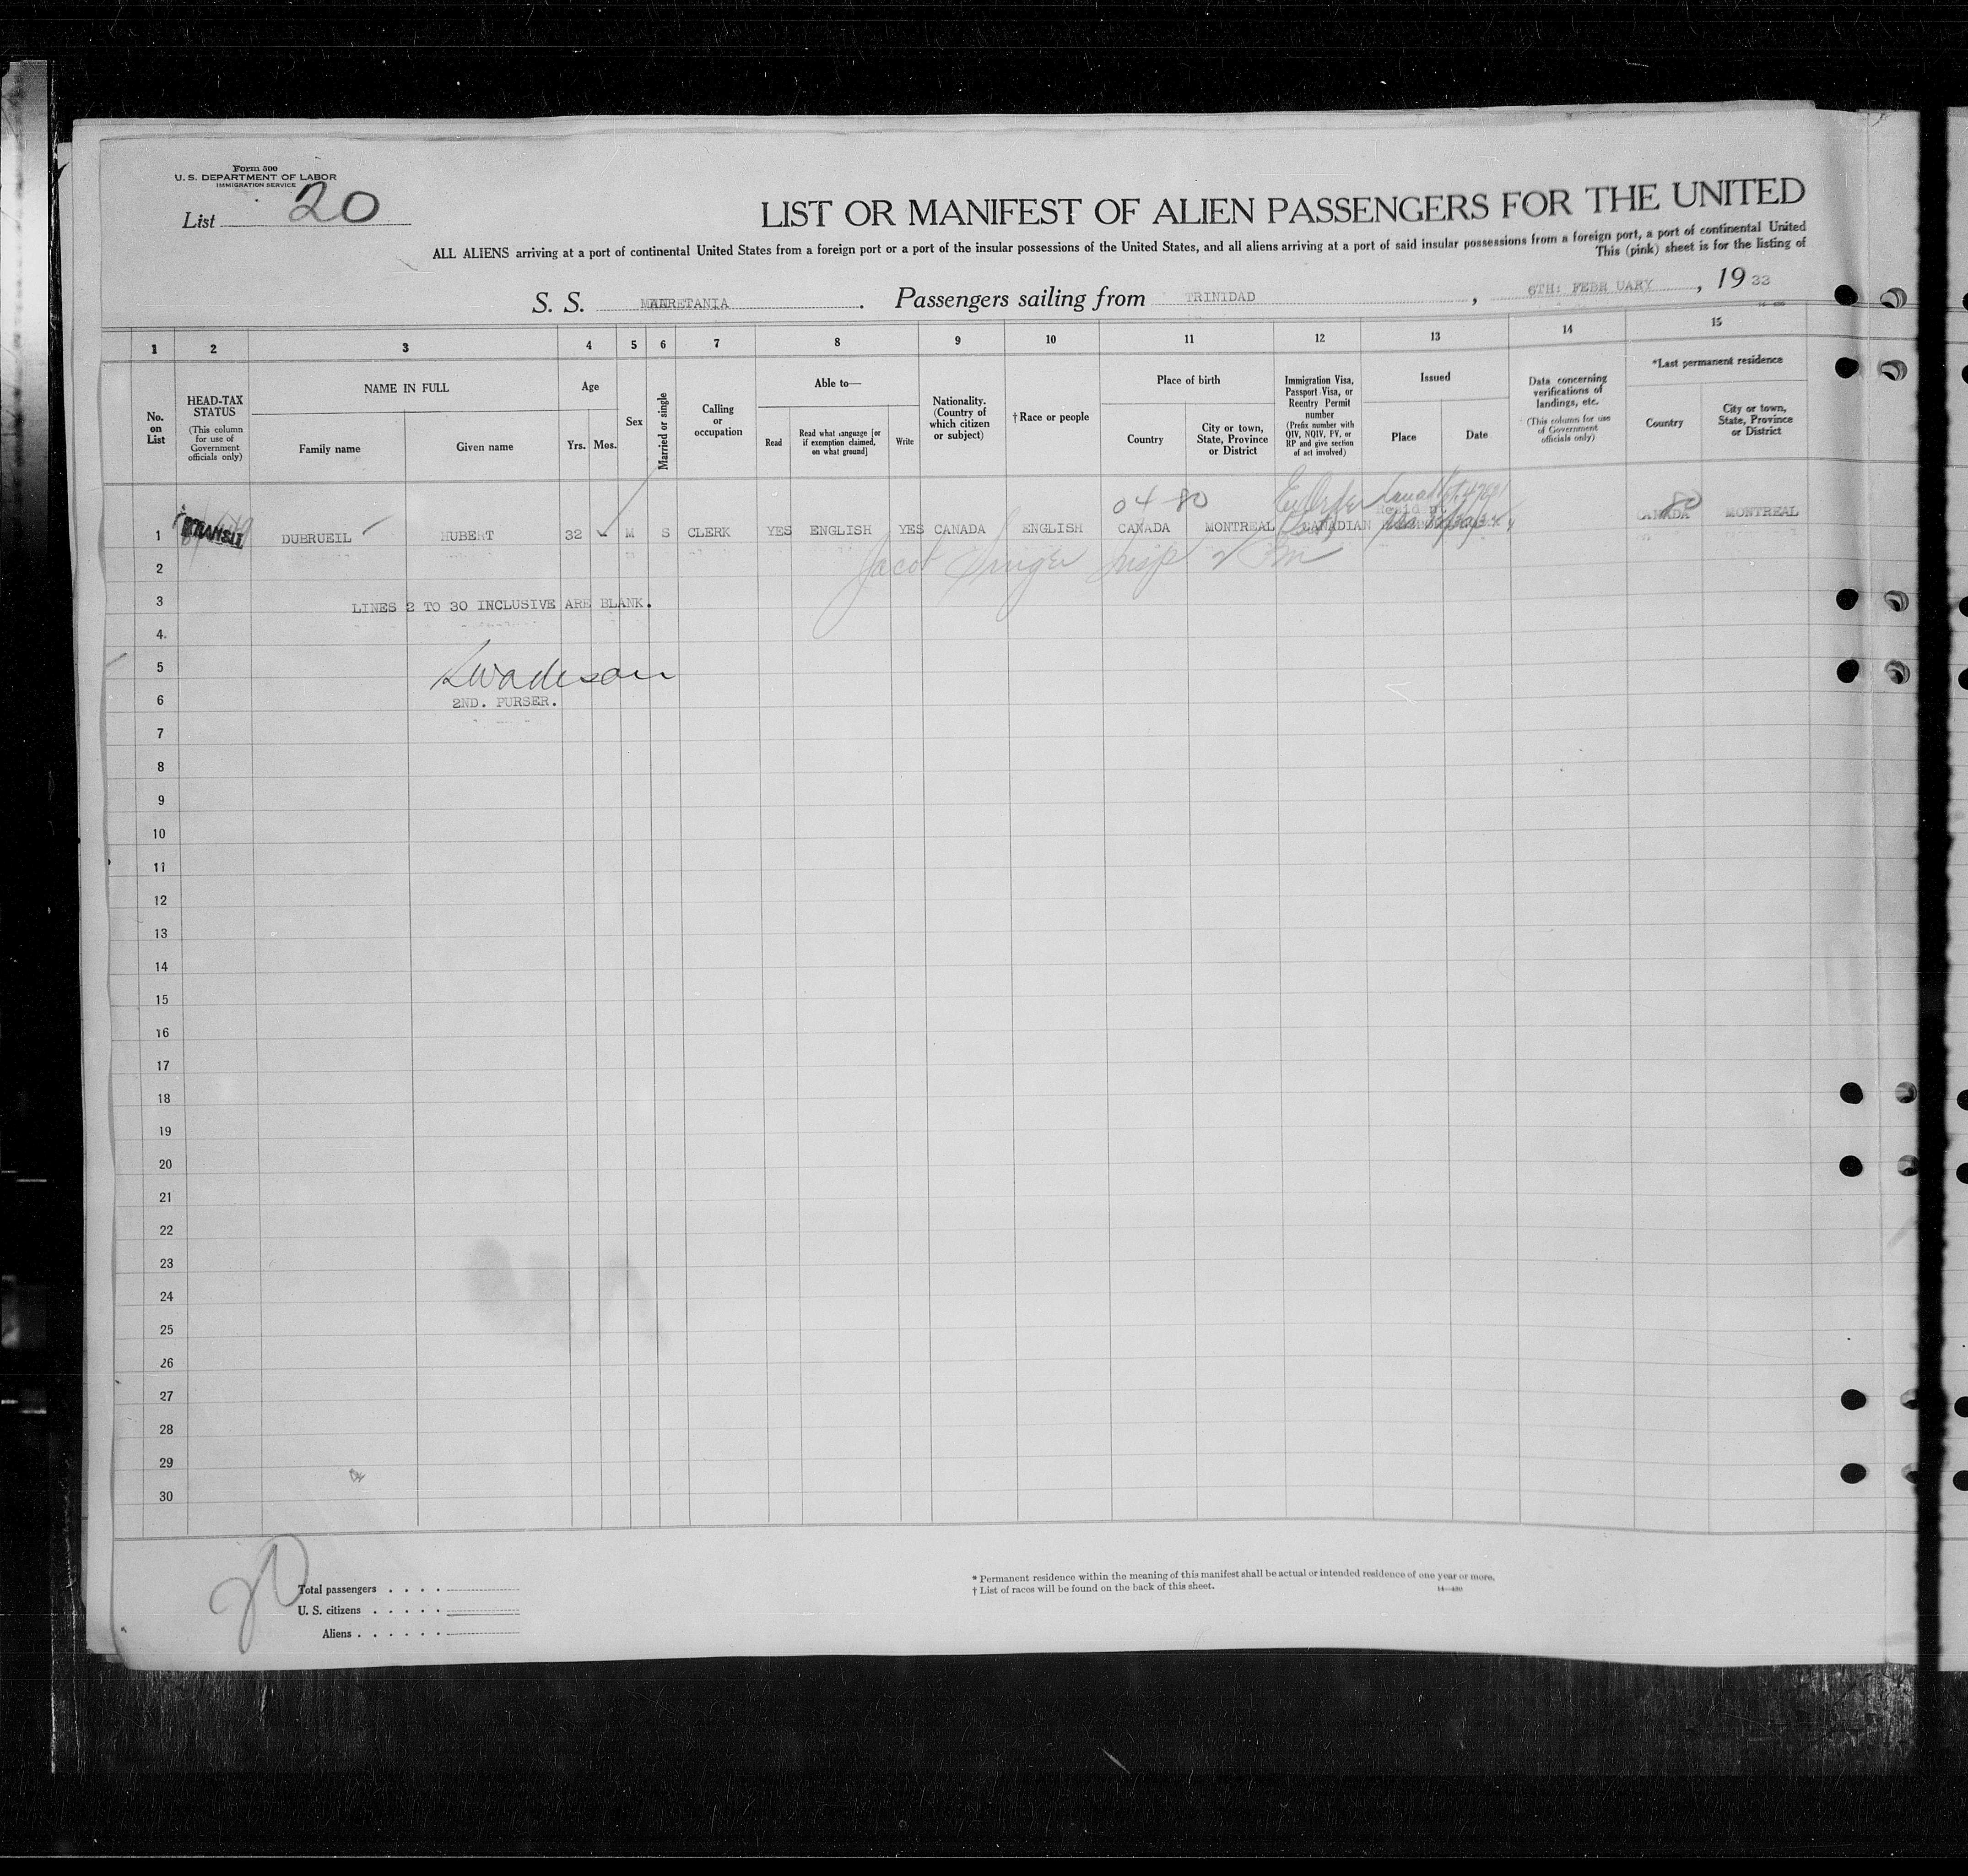 Form 500
U. S. DEPARTMENT OF LABOR
IMMIGRATION SERVICE
List 20
LIST OR MANIFEST OF ALIEN PASSENGERS FOR THE UNITED
ALL ALIENS arriving at a port of continental United States from a foreign port or a port of the insular possessions of the United States, and all aliens arriving at a port of said insular possessions from a foreign port, a port of continental United
This (pink) sheet is for the listing of
S. S. MAURETANIA . Passengers sailing from TRINIDAD , 6TH: FEBRUARY , 19 33
14—480
1 2 3 4 5 6 7 8 9 10 11 12 13 14 15
No. on List
HEAD-TAX STATUS
(This column for use of Government officials only)
NAME IN FULL
Family name
Given name
Age
Yrs. Mos.
Sex
Married or single
Calling or occupation
Able to—
Read
Read what language [or if exemption claimed, on what ground]
Write
Nationality. (Country of which citizen or subject)
† Race or people
Place of birth
Country
City or town, State, Province or District
Immigration Visa, Passport Visa, or Reentry Permit number
(Prefix number with QIV, NQIV, PV, or RP and give section of act involved)
Issued
Place
Date
Data concerning verifications of landings, etc.
(This column for use of Government officials only)
*Last permanent residence
Country
City or town, State, Province or District
04 80
80
1 TRANSIT DUBRUEIL HUBERT 32 M S CLERK YES ENGLISH YES CANADA ENGLISH CANADA MONTREAL CANADIAN CANADA MONTREAL
Jacob Singer Insp
2
3 LINES 2 TO 30 INCLUSIVE ARE BLANK.
4
5
6 2ND. PURSER.
7
8
9
10
11
12
13
14
15
16
17
18
19
20
21
22
23
24
25
26
27
28
29
30
20
Total passengers
U. S. citizens
Aliens
* Permanent residence within the meaning of this manifest shall be actual or intended residence of one year or more.
† List of races will be found on the back of this sheet.
14—480